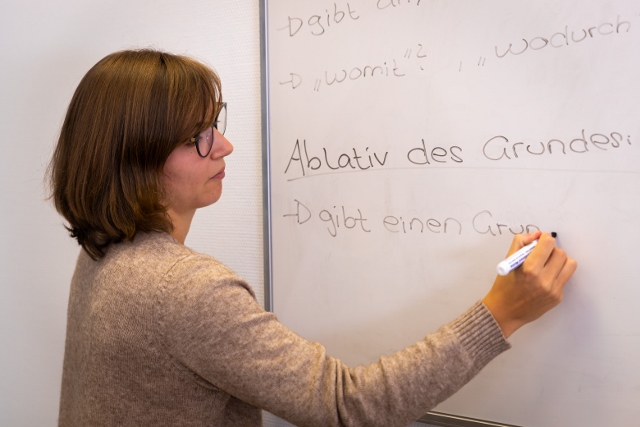 → gibt an,
→ „womit"?, „wodurch
Ablativ des Grundes:
→ gibt einen Grun